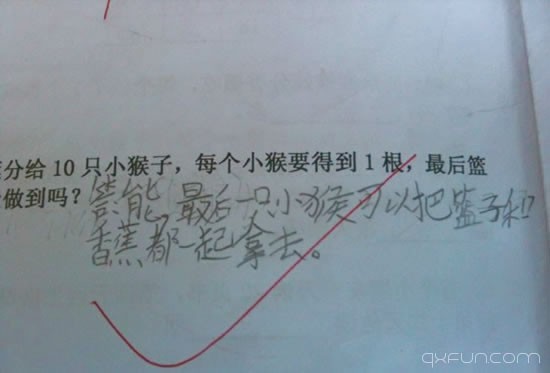 分给 10 只小猴子，每个小猴要得到 1 根，最后篮
做到吗？答能，最后一只小猴可以把篮子和
香蕉都一起拿去。
qxfun.com